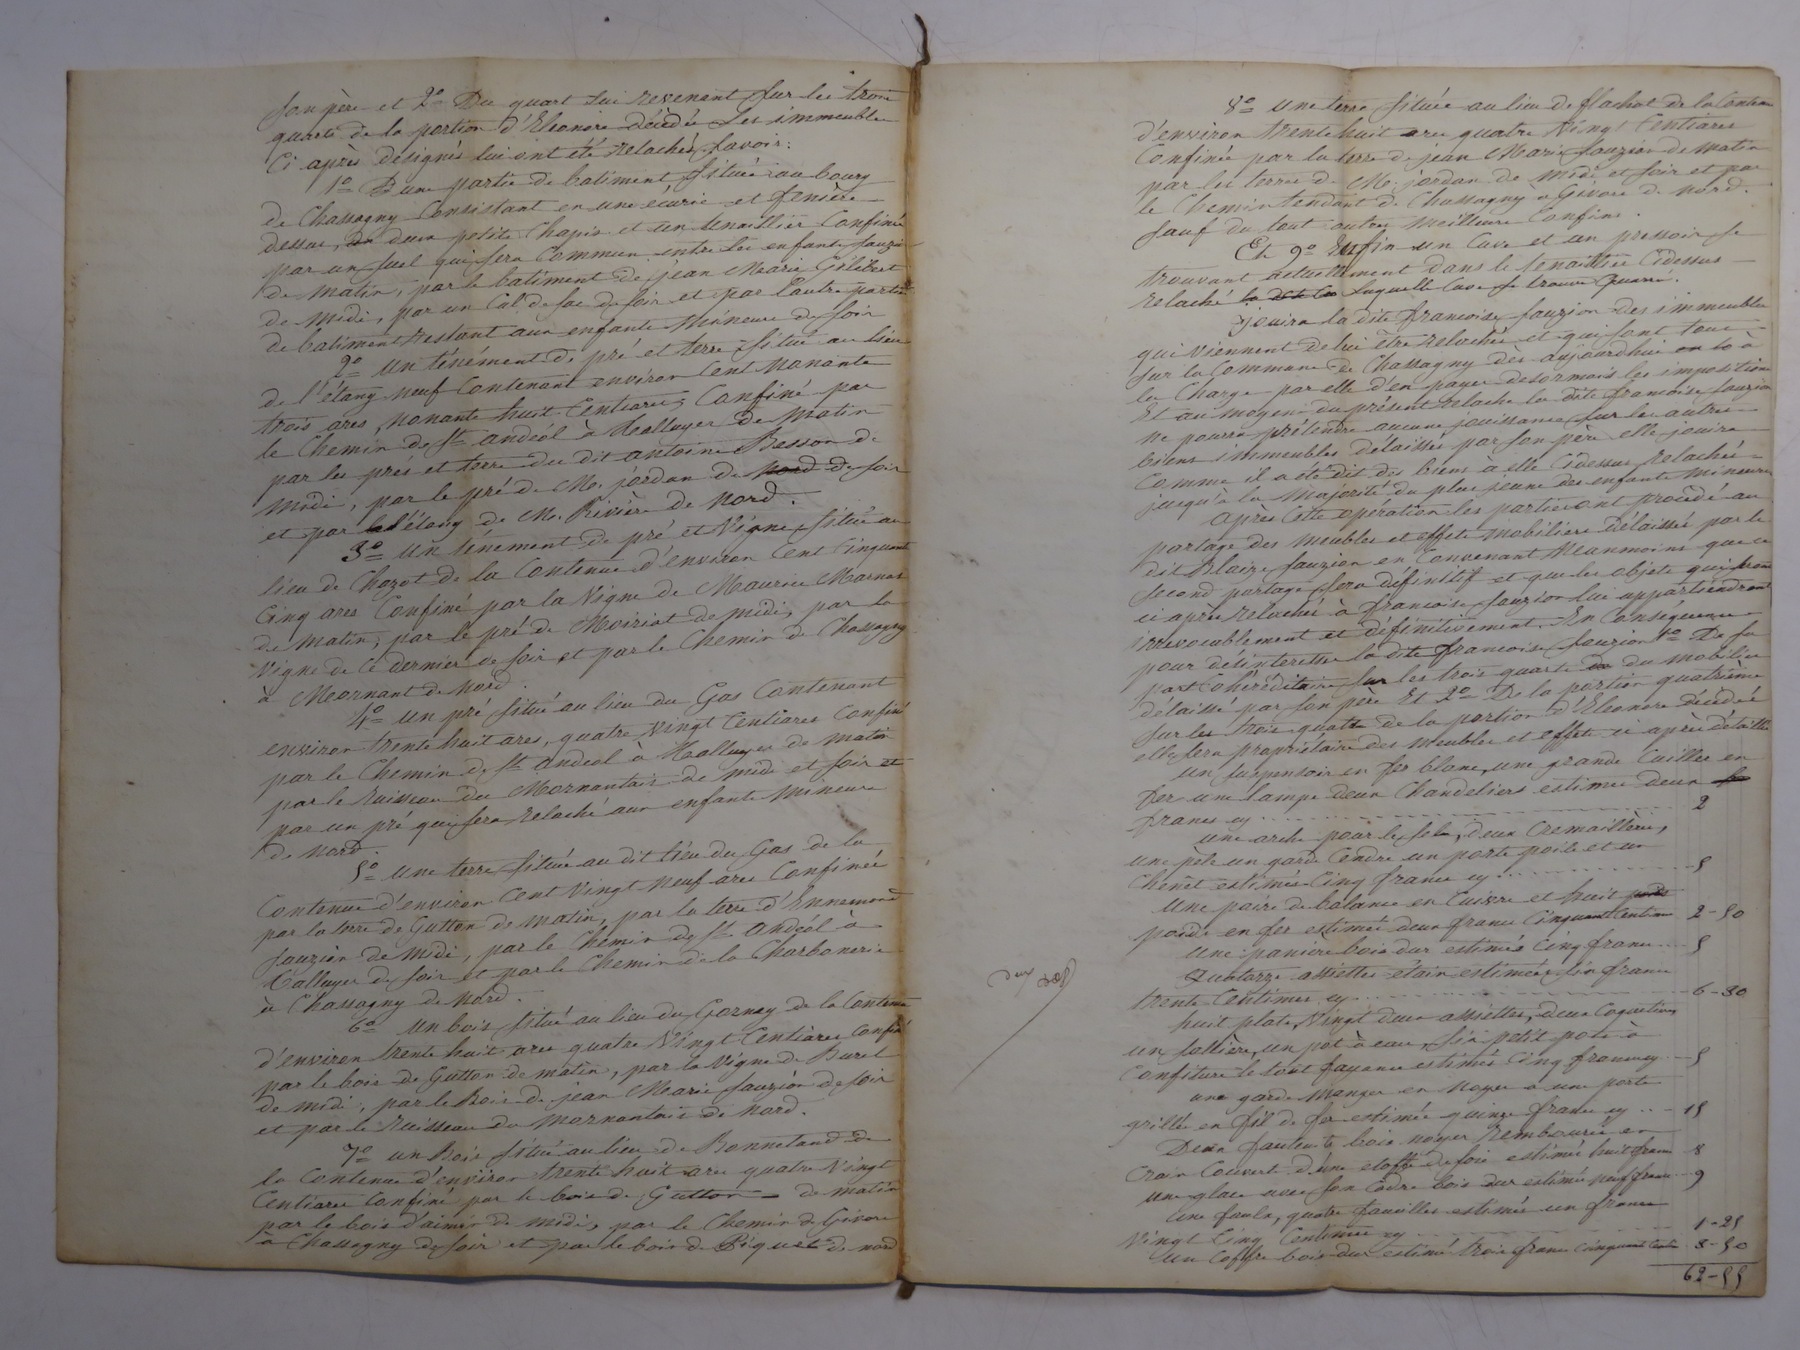 son père et 2° Du quart lui revenant sur les trois
quarts de la portion d'Eleonore décédée Les immeubles
Ci après désignés lui ont été relachés, savoir:
1° D'une partie de batiment située au bourg
de Chassagny Consistant en une écurie et fenière
dessus, deux petits Chapis et un tenaillier Confinés
par un suel qui sera Commun entre les enfants fauzion
de matin, par le batiment de jean Marie Gilibert
de Midi, par un Cul de sac de soir et par l'autre partie
de batiment restant aux enfants Mineurs de soir
2° un ténément de pré et terre situé au lieu
de l'étang neuf Contenant environ Cent Nonante
trois ares, nonante huit Centiares, Confiné par
le Chemin de St andéol à Talluyer de Matin
par les prés et terre du dit antoine Besson de
Midi, par le pré de M. jordan de nord de soir
et par l'étang de M. Rivière de Nord.
3° un ténement de pré et Vigne situé au
lieu de Chazot de la Contenue d'environ Cent Cinquante
Cinq ares Confiné par la Vigne de Maurice Marnas
de Matin, par le pré de Moiriat de midi, par la
Vigne de Ce dernier de soir et par le Chemin de Chassagny
à Mornant de Nord.
4° un pré situé au lieu du Gas Contenant
environ trente huit ares, quatre Vingt Centiares Confiné
par le Chemin de St andéol à Talluyer de matin
par le Ruisseau du Mornantais de midi et soir et
par un pré qui sera relaché aux enfants Mineurs
de Nord.
5° une terre située au dit lieu du Gas de la
Contenue d'environ Cent Vingt Neuf ares Confinée
par la terre de Gutton de Matin, par la terre d'Ennemond
fauzion de Midi, par le Chemin de St andéol à
Talluyer de soir et par le Chemin de la Charbonerie
à Chassagny de Nord.
6° un bois situé au lieu du Gornay de la Contenue
d'environ trente huit ares quatre Vingt Centiares Confiné
par le bois de Gutton de matin, par la Vigne de Buret
de midi, par le Bois de jean Marie fauzion de soir
et par le Ruisseau du mornantais de Nord.
7° un Bois situé au lieu de Bonnetand de
la Contenue d'environ trente huit ares quatre Vingt
Centiares Confiné par le bois de Gutton de matin
par le bois d'aimé de midi, par le Chemin de Givors
à Chassagny de soir et par le bois de Piquet de nord
8° une terre située au lieu de flachat de la Contenue
d'environ trente huit ares quatre Vingt Centiares
Confinée par la terre de jean Marie fauzion de matin
par les terres de M. jordan de Midi et soir et par
le Chemin tendant de Chassagny à Givors de Nord.
sauf du tout autres Meilleurs Confins.
Et 9° Enfin un Cuve et un pressoir se
trouvant actuellement dans le tenaillier Cidessus
Relaché laquelle Cuve se trouve Quarré.
jouira la dite francoise fauzion des immeubles
qui Viennent de lui être relachés et qui sont tous
sur la Commune de Chassagny dès aujourdhui à
la Charge par elle d'en payer désormais les impositions
Et au moyen du présent relache la dite francoise fauzion
ne pourra prétendre aucune jouissance sur les autres
biens immeubles délaissés par son père elle jouira
Comme il a été dit des biens à elle Cidessus relachés
jusqu'à la Majorité du plus jeune des enfants Mineurs
après Cette operation les parties ont procédé au
partage des Meubles et effets mobiliers délaissés par le
dit Blaize fauzion en Convenant Neanmoins que ce
second partage sera définitif et que les objets qui seront
ci après relachés à francoise fauzion lui appartiendront
irrevocablement et définitivement. En Conséquence
pour désinteresser la dite francoise fauzion 1° De sa
part Cohéréditaire sur les trois quarts du mobilier
délaissé par son père Et 2° De la portion quatrième
sur les trois quarts de la portion d'Eleonore décédée
elle sera propriétaire des meubles et effets ci après détaillés
un suspensoir en fer blanc, une grande Cuiller en
fer une lampe deux Chandeliers estimés deux
francs cy 2
une arche pour le sel, deux Cremaillères,
une pele un garde Cendre un porte poile et un
Chenêt estimés Cinq francs cy 5
Une paire de balance en Cuivre et huit poids
poids en fer estimés deux francs Cinquante Centimes 2-50
Une panière bois dur estimés Cinq francs 5
Quatorze assiettes étain estimées six francs
trente Centimes cy 6-30
huit plats, Vingt deux assiettes, deux Coquetiers
un sallière, un pot à eau, six petit pots à
Confiture le tout fayance estimés Cinq francs cy 5
une garde Manger en Noyer à une porte
grillée en fil de fer estimée quinze francs cy 15
Deux fauteuils bois noyer Rembourrés en
Crain Couvert d'une etoffe de soie estimés huit francs 8
une glace avec son Cadre bois dur estimée neuf francs 9
Une faulx, quatre faucilles estimés un franc
Vingt Cinq Centimes cy 1-25
un Coffre bois dur estimé trois francs Cinquante Centimes 3-50
62-55